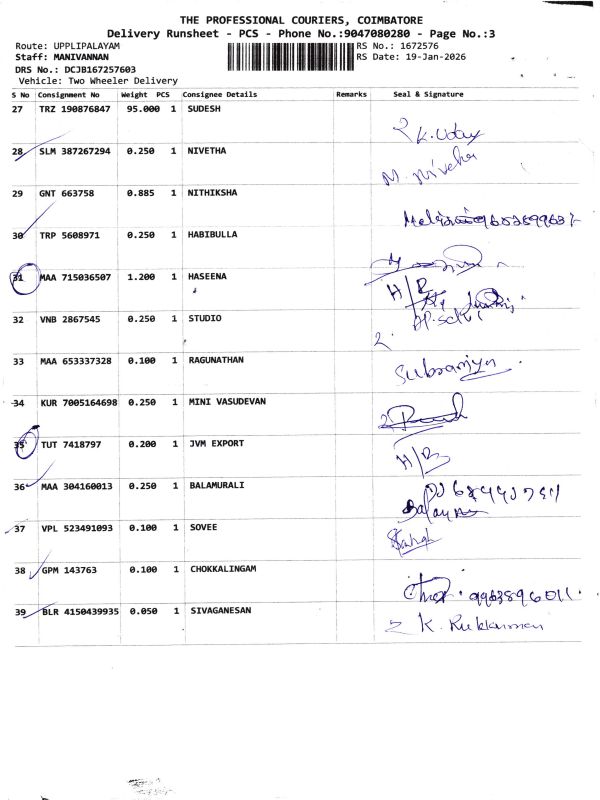 THE PROFESSIONAL COURIERS, COIMBATORE
Delivery Runsheet - PCS - Phone No.:9047080280 - Page No.:3
Route: UPPLIPALAYAM
RS No.: 1672576
Staff: MANIVANNAN
RS Date: 19-Jan-2026
DRS No.: DCJB167257603
Vehicle: Two Wheeler Delivery
S No Consignment No Weight PCS Consignee Details Remarks Seal & Signature
27 TRZ 190876847 95.000 1 SUDESH
K. Uday
28 SLM 387267294 0.250 1 NIVETHA
M. Nivetha
29 GNT 663758 0.885 1 NITHIKSHA
30 TRP 5608971 0.250 1 HABIBULLA
31 MAA 715036507 1.200 1 HASEENA
H/R
32 VNB 2867545 0.250 1 STUDIO
2.
33 MAA 653337328 0.100 1 RAGUNATHAN
34 KUR 7005164698 0.250 1 MINI VASUDEVAN
35 TUT 7418797 0.200 1 JVM EXPORT
36 MAA 304160013 0.250 1 BALAMURALI
37 VPL 523491093 0.100 1 SOVEE
38 GPM 143763 0.100 1 CHOKKALINGAM
39 BLR 4150439935 0.050 1 SIVAGANESAN
K.